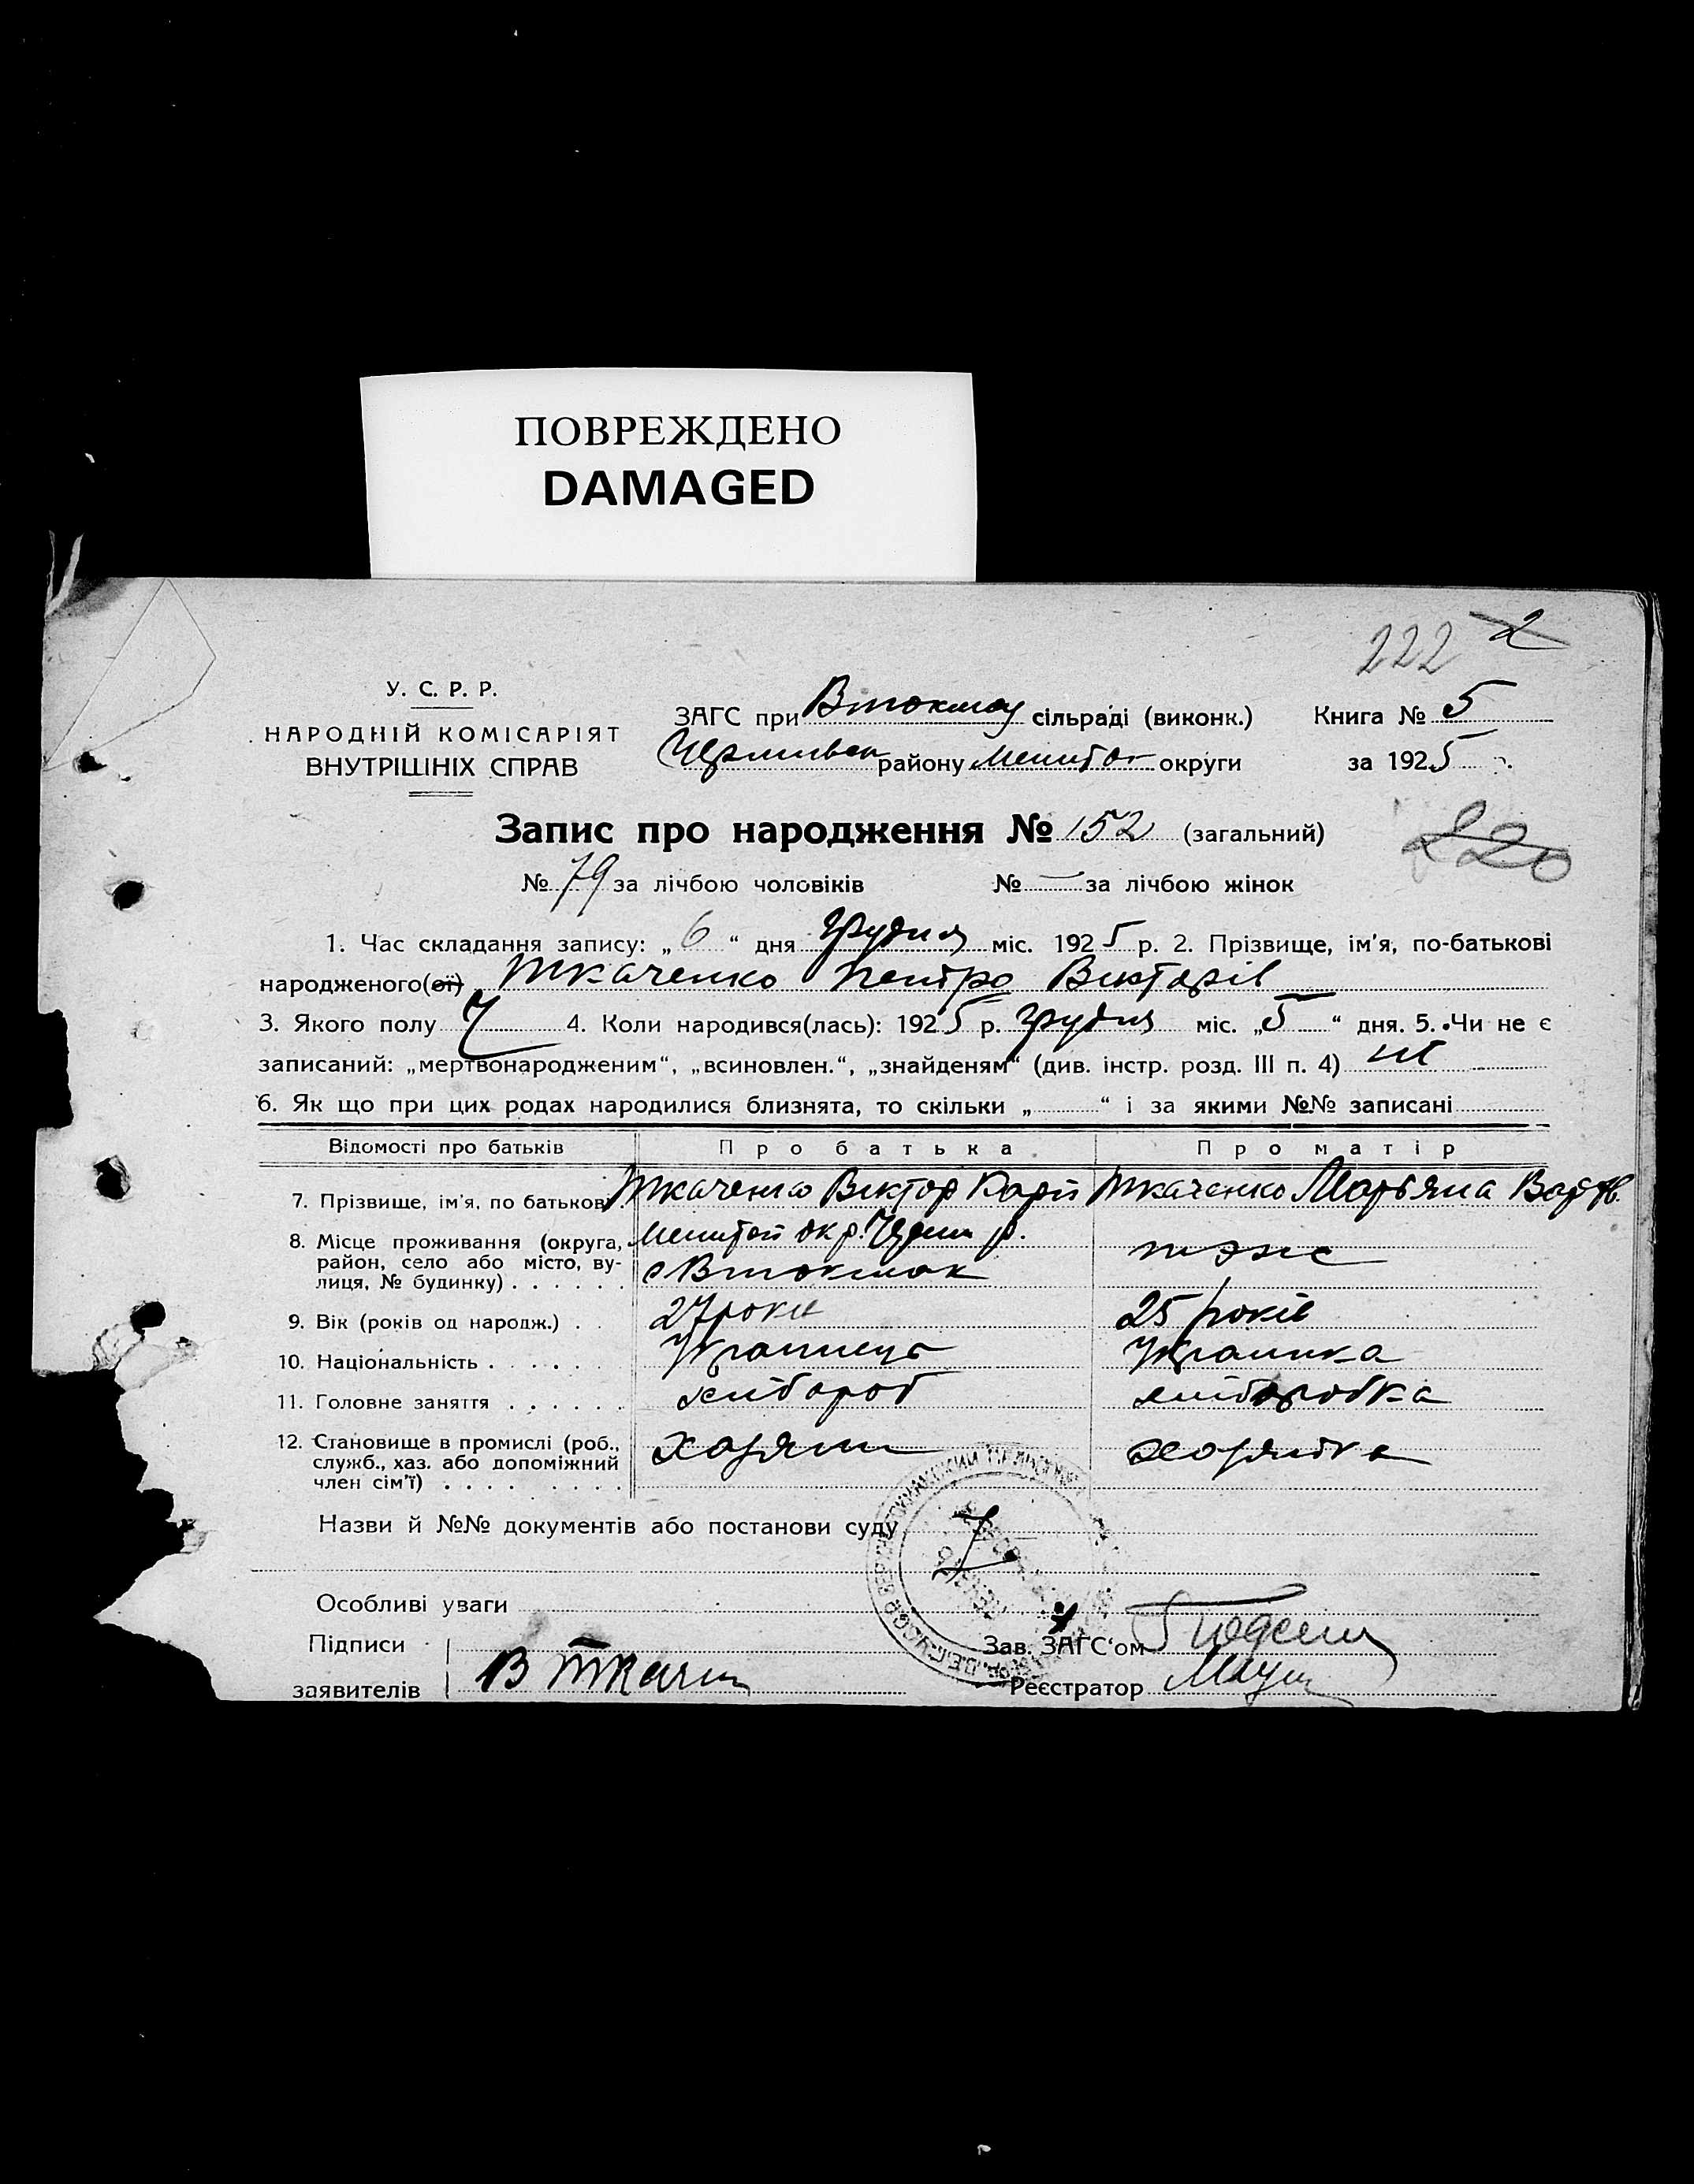 ПОВРЕЖДЕНО
DAMAGED
222 2
У. С. Р. Р.
НАРОДНІЙ КОМІСАРІЯТ
ВНУТРІШНІХ СПРАВ
ЗАГС при Втокмац сільраді (виконк.) Книга № 5
району округи за 1925 р.
Запис про народження № 152 (загальний)
220
№ 79 за лічбою чоловіків № — за лічбою жінок
1. Час складання запису: „6“ дня Грудня міс. 1925 р. 2. Прізвище, ім'я, по-батькові
народженого(ої) Ткаченко Петро Вікторів
3. Якого полу Ч 4. Коли народився(лась): 1925 р. Грудня міс. „5“ дня. 5. Чи не є
записаний: „мертвонародженим“, „всиновлен.“, „знайденям“ (див. інстр. розд. III п. 4) ні
6. Як що при цих родах народилися близнята, то скільки „ “ і за якими №№ записані
Відомості про батьків Про батька Про матір
7. Прізвище, ім'я, по батькові Ткаченко Віктор Карп Ткаченко Марьяна
8. Місце проживання (округа, окр. р.
район, село або місто, ву- с Втокмак тэже
лиця, № будинку)
9. Вік (років од народж.) 27 роки 25 років
10. Національність Українець Українка
11. Головне заняття хлібороб хліборобка
12. Становище в промислі (роб., Хозяин хозяйка
служб., хаз. або допоміжний
член сім'ї)
Назви й №№ документів або постанови суду
Особливі уваги
Підписи Зав. ЗАГС'ом
заявителів В Ткачен Реєстратор